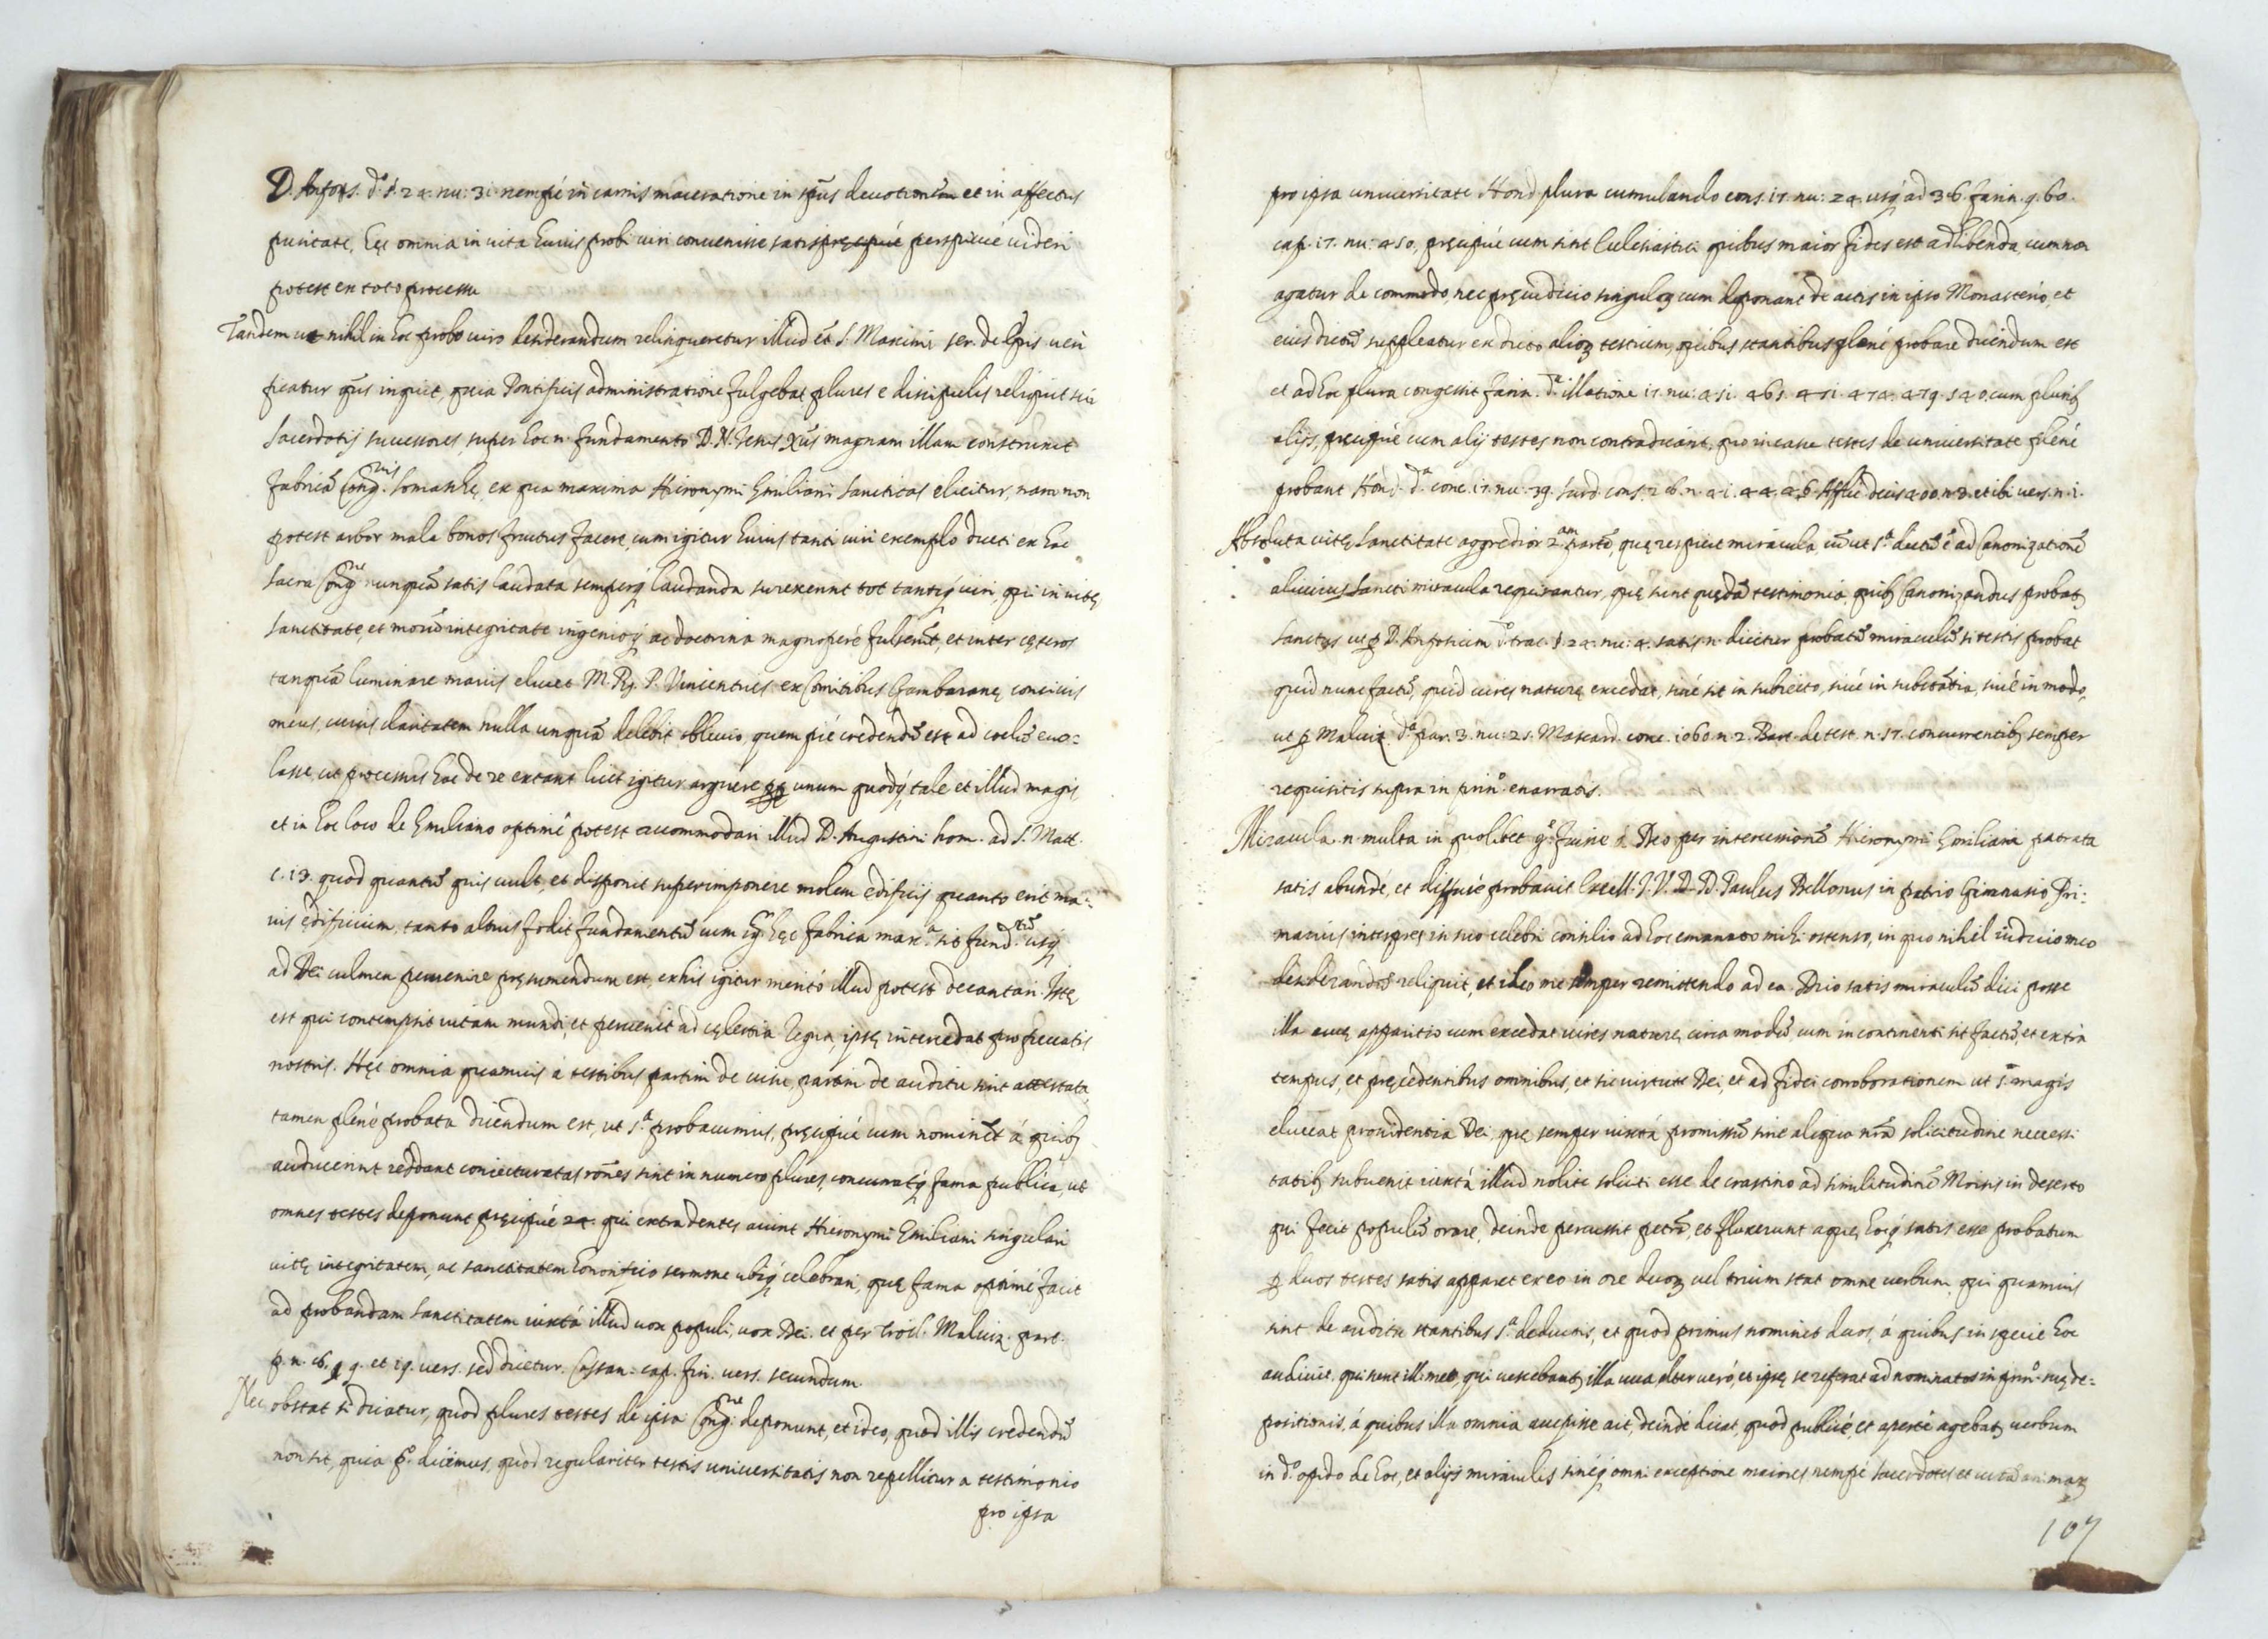 D. Anfos. d.º §. 24. nu: 3. nempé in carnis maceratione in spũs deuotione et in affectus
puritate, hęc omnia in uita huius probi uiri conuenisse satis perspicué uideri
potest ex toto processu
Tandem ut nihil in hoc probo uiro desiderandum relinqueretur illud ẽt S. Maximi ser. de Epis ueri
ficatur inquit, quia Pontificis administratione fulgebat plures e discipulis reliquit sui
Sacerdotij successores, super hoc n. fundamento D. N. Jesus Xũs magnam illam construxit
fabricã Cong.nis Somaschę, ex qua maxima Hieronymi Emiliani Sanctitas elicitur, nam non
potest arbor mala bonos fructus facere, cum igitur huius tanti uiri exemplo ducti ex hac
sacra Cong.ne nunquã satis laudata semperq; laudanda surexerint tot tantiq; uiri, qui in uitę
sanctitate, et morũ integritate ingenioq; ac doctrina magnoperé fulserũt, et inter cęteros
tanquã luminare maius elucet M. R. P. Vincentius ex Comitibus Gambaranę conciuis
meus, cuius claritatem nulla unquã delebit obliuio, quem pié credendũ est ad coelũ euo=
lasse ut processus hac de re extant licet igitur arguere unum quodq; tale et illud magis,
et in hoc loco de Emiliano optimé potest accommodari illud D. Augustini hom. ad S. Matt.
c. 13. quod quantũ quis uult, et disponit superimponere molem edificij quanto erit ma=
ius ędificium, tanto altius fodit fundamentũ cum hęc fabrica max.ª sit fund.tũ usq;
ad Dei culmen peruenire pręsumendum est, ex his igitur meritó illud potest decantari. Iste
est qui contempsit uitam mundi, et peruenit ad cęlestia regna, ipsę intercedat pro peccatis
nostris. Hęc omnia quamuis á testibus partim de uisu, partim de auditu sint attestata,
tamen plené probata dicendum est, ut s.ª probauimus, pręcipué cum nominẽt á quib;
audiuerint reddant coniecturatas rõnes sint in numero plures, concuratq; fama publica, ut
omnes testes deponunt pręcipué 24. qui extra dentes aiunt Hieronymi Emiliani singulari
uitę integritatem, ac sanctitatem honorifico sermone ubiq; celebrari, quę fama optimé facit
ad probandam sanctitatem iuxtá illud uox populi, uox Dei. et per Troil. Maluiz. part.
p. n. 9. et 19. uers. sed dicetur. Castan. cap. fin. uers. secundum.
Nec obstat si dicatur, quod plures testes de ipsa Cong.ne deponunt, et ideo, quod illis credendũ
non sit, quia p.º dicimus, quod regulariter testis uniuersitatis non repellitur a testimonio
pro ipsa
pro ipsa uniuersitate Hond. plura cumulando cons. 17. nu: 24. usq; ad 36. farin. q. 60.
cap. 17. nu: 450, pręcipué cum sint Ecclesiastici quibus maior fides est adhibenda, cum non
agatur de commodo, nec pręiudicio singuloꝝ cum deponant de actis in ipso Monasterio, et
eius dictũ suppleatur ex dicto alioꝝ testium, quibus stantibus plené probare dicendum est
et ad hoc plura congessit farin. d.ª illatione 17. nu: 451. 465. 471. 474. 479. 540. cum plurib;
alijs, pręcipué cum alij testes non contradicant, quo in casu testes de uniuersitate plené
probant Hond. d.º cons. 17. nu: 39. Surd. cons. 26. n. 41. 44. 46. Afflic. decis. 400. n. 3. et ibi uers. n. 1.
Absoluta uitę Sanctitate aggredior 2.am partẽ, quę respicit miracula, cũ ut s.ª dictũ é ad Canonizationẽ
alicuius Sancti miracula requirantur, quę sint quędã testimonia, quib; Canonizandus probat;
Sanctus ut ꝑ D. Anfosium d.º trac. §. 24. nu: 4. satis n. dicitur probatũ miraculũ si testis probat
quid nunc factũ, quod uires naturę excedat, siué sit in subiecto, siué in substãtia, siué in modo,
ut ꝑ Maluiz. d.ª par. 3. nu: 21. Mascard. conc. 1060. n. 2. Bart. de test. n. 57. concurrentib; semper
requisitis supra in prin.º enarratis.
Miracula n. multa in quolibet g.e fuisse á Deo per intercessionẽ Hieronymi Emiliani patrata
satis abundé, et diffusé probauit Excell. J. V. D. D. Paulus Bellonus in patrio Gimnasio Pri=
marius interpres in suo celebri consilio ad hoc emanato mihi ostenso, in quo nihil iudicio meo
desiderandũ reliquit, et ideo me semper remittendo ad ea. Dico satis miraculũ dici posse
illa uuę apparitio cum excedat uires naturę, circa modũ, cum in continenti sit factũ, et extra
tempus, et pręcedentibus ominibus, et sic uirtute Dei, et ad fidei corroborationem ut s.ª magis
eluceat prouidentia Dei, quę semper iuxtá promissũ sine aliqua nrã solicitudine necessi
tatib; subuenit iuxtá illud nolite soliciti esse de crastino ad similitudinẽ Moisis in deserto
qui fecit populũ orare, deinde percussit petrã, et fluxerunt aquę, hocq; satis esse probatum
ꝑ duos testes satis apparet ex eo in ore duoꝝ uel trium stat omne uerbum, qui quamuis
sint de auditu stantibus s.ª deductis, et quod primus nominet duos, á quibus in specie hoc
audiuit, qui sunt ill. met, qui uescebant; illa uua, alter ueró, et ipsę se referat ad nominatos in prin.º suę de=
positionis, á quibus illa omnia accepisse ait, deinde dicat, quod publicé, et aperté agebat; uerbum
in d.º opido de hoc, et alijs miraculis sintq; omni exceptione maiores nempé Sacerdotes et curã animaꝝ
107